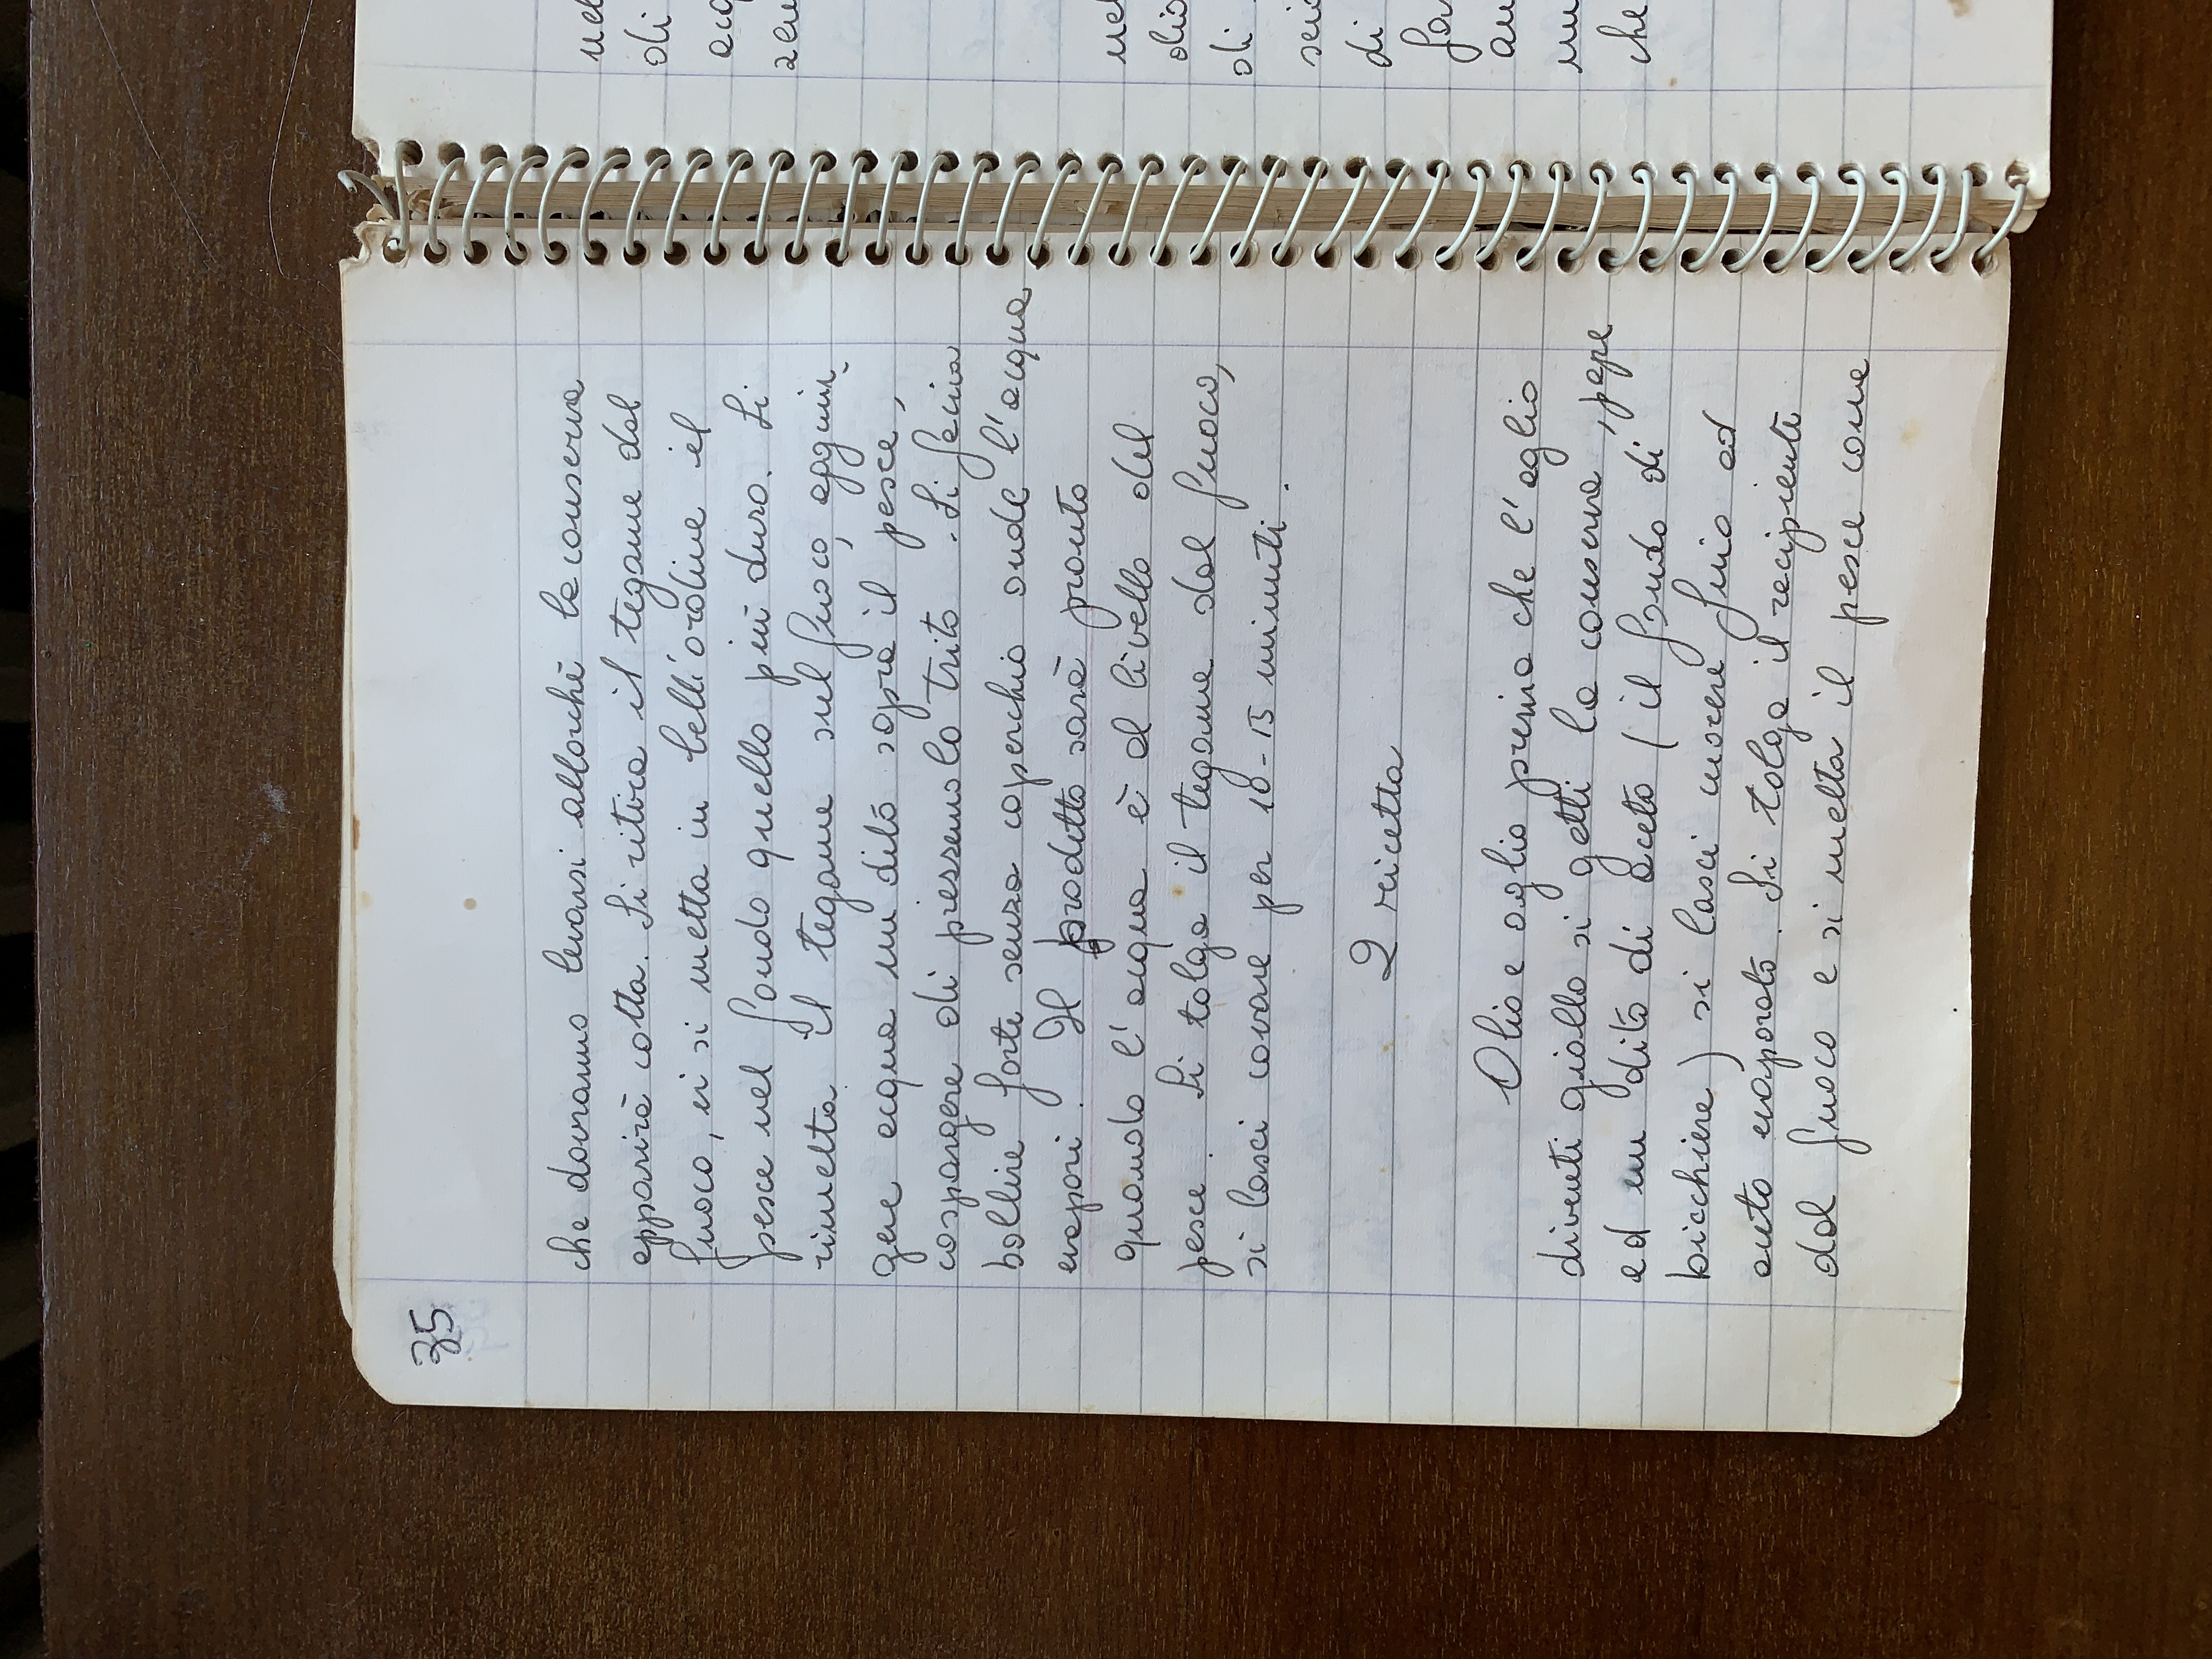 35
che dovranno levarsi allorchè la conserva
apparirà cotta. Si ritira il tegame dal
fuoco, vi si metta in bell'ordine il
pesce nel fondo quello più duro. Si
rimetta il tegame sul fuoco, aggiun_
gere acqua un dito sopra il pesce,
cospargere di prezzemolo trito. Si faccia
bollire forte senza coperchio onde l'acqua
evapori. Il prodotto sarà pronto
quando l'acqua è al livello del
pesce. Si tolga il tegame dal fuoco,
si lasci covare per 10-15 minuti.
2 ricetta
Olio e aglio prima che l'aglio
diventi giallo si getti la conserva, pepe
ed un dito di aceto (il fondo di
bicchiere) si lasci cuocere fino ad
aceto evaporato. Si tolga il recipiente
dal fuoco e si metta il pesce come
nel
di
che